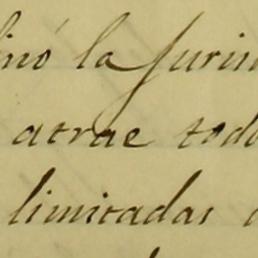 inó la Jurin
atrae todo
limitadas